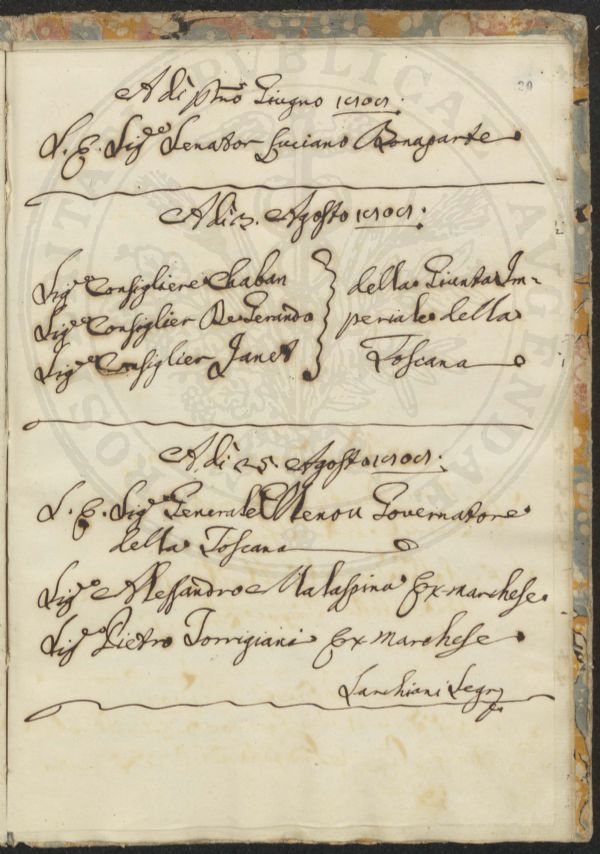 30
A dì p.mo Giugno 1808.
S. E. Sig.e Senator Luciano Bonaparte
A di 3. Agosto 1808.
Sig.e Consigliere Chaban
Sig.e Consiglier De Gerando
Sig.e Consiglier Janet
della Giunta Im-
periale della
Toscana
A di 25. Agosto 1808.
S. E. Sig.e Generale Menou Governatore
della Toscana
Sig.e Alessandro Malaspina Ex-marchese
Sig.e Pietro Torrigiani Ex marchese
Sarchiani Segr.